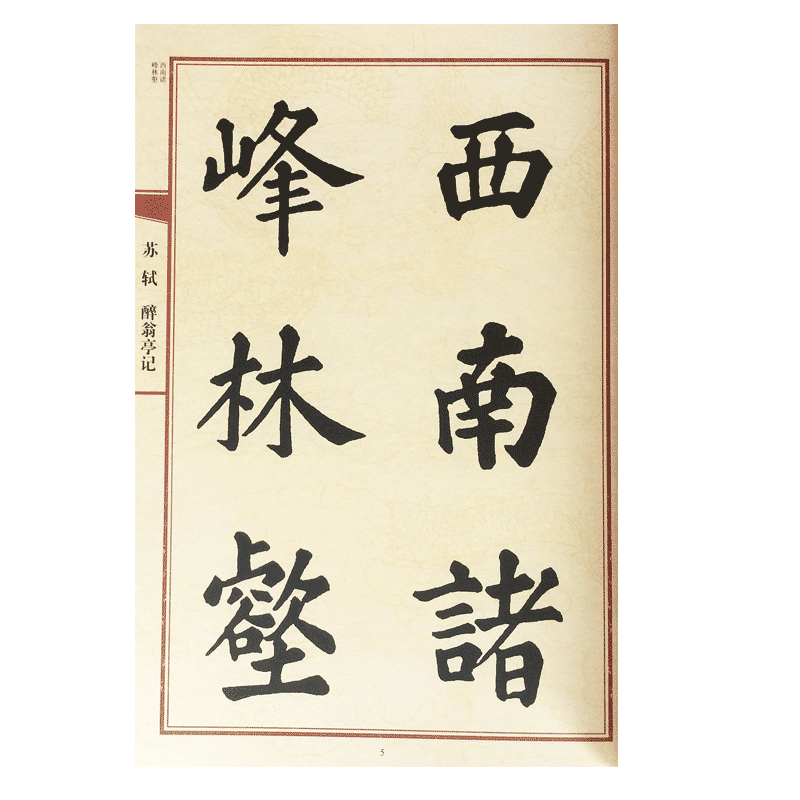 西南諸
峰林壑
西南诸
峰林壑
苏轼 醉翁亭记
5